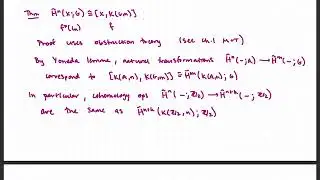 Thm H̃ⁿ(X;G) ≅ [X, K(G,n)]
f*(u) f
Proof uses obstruction theory (see Ch.1 M+T)
By Yoneda lemma, natural transformations H̃ⁿ(-;A) → H̃ᵐ(-;G)
correspond to [K(A,n), K(G,m)] ≅ H̃ᵐ(K(A,n); G)
In particular, cohomology ops H̃ⁿ(-;ℤ/2) → H̃ⁿ⁺ᵏ(-;ℤ/2)
are the same as H̃ⁿ⁺ᵏ(K(ℤ/2,n);ℤ/2)